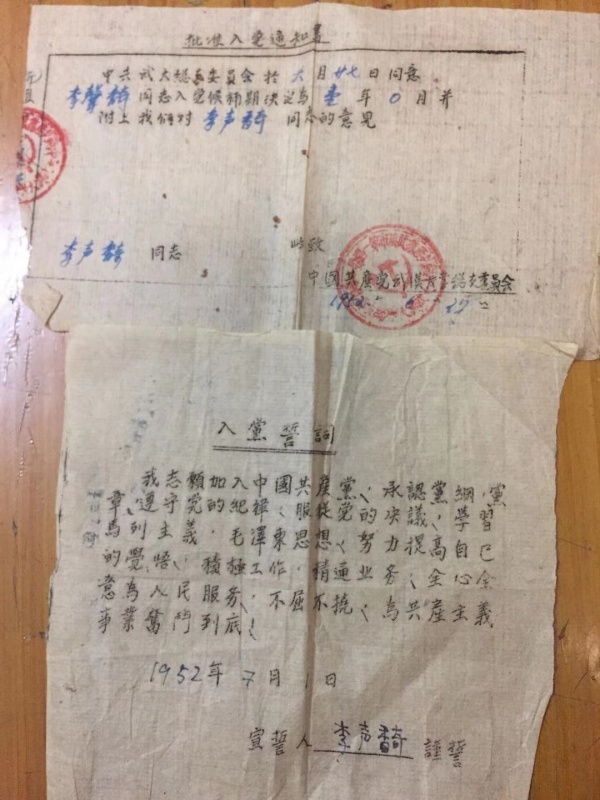 批准入党通知書
中共武大總支委員会於六月廿七日同意
李 同志入党候補期決定為壹年0月并
附上我們对李声 同志的意見
李声 同志
此致
中國共産党武漢大学總支委員会
1952 6 27
入黨誓詞
我志願加入中國共産黨、承認黨綱、黨
章、遵守党的紀律、服從党的决議、學習
馬列主義、毛澤東思想、努力提高自己
的覺悟、積極工作、精通業務、全心全
意為人民服务、不屈不撓、為共產主義
事業奮鬥到底、!
1952年7月1日
宣誓人 李声 謹誓